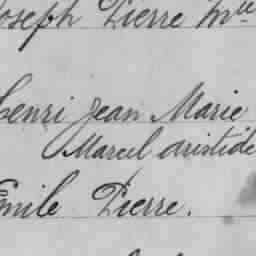 Joseph Pierre Mie
Henri Jean Marie
Marcel aristide
Emile Pierre.